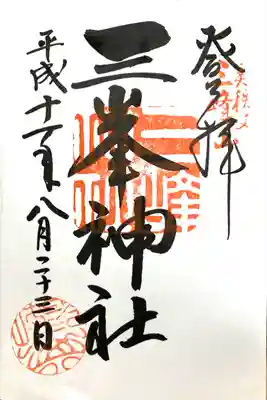 登拝
奥秩父
三峯神社
平成十一年八月二十三日